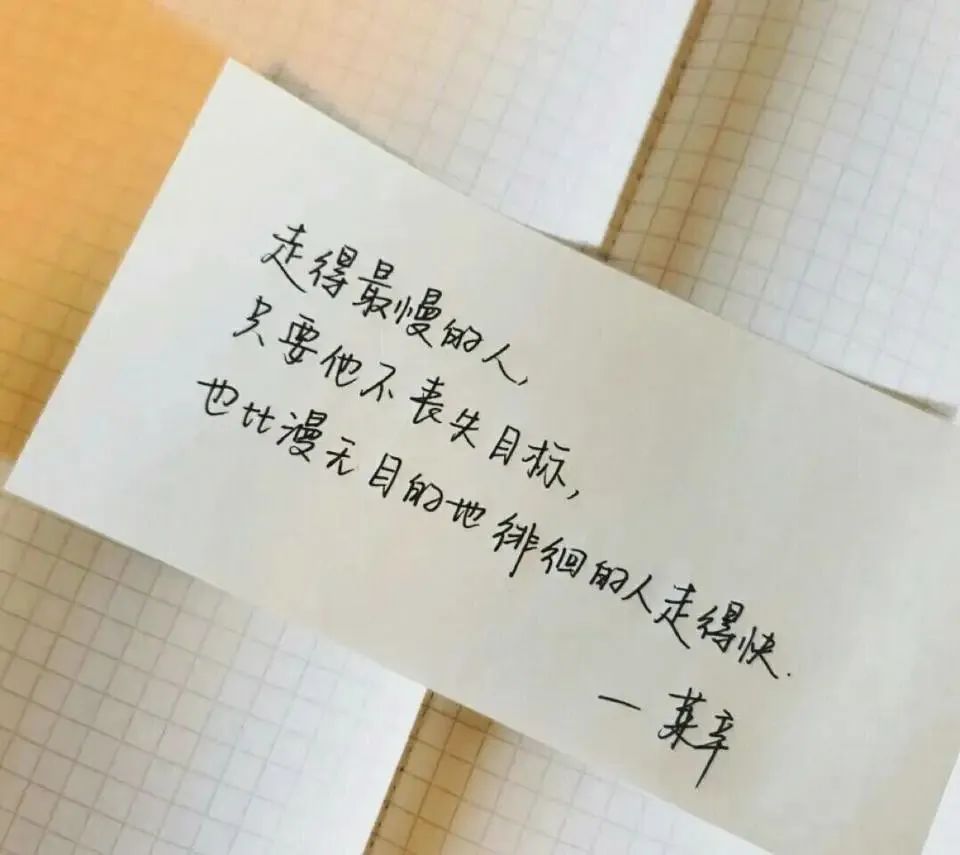 走得最慢的人,
只要他不丧失目标,
也比漫无目的地徘徊的人走得快.
—莱辛